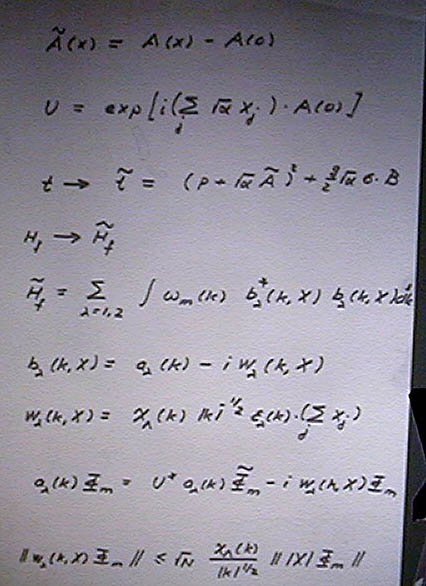 Ã(x) = A(x) - A(0)
U = exp[i(Σ_j √α x_j) · A(0)]
t → t̃ = (p + √α Ã)² + g/2 √α σ · B
H_f → H̃_f
H̃_f = Σ_{λ=1,2} ∫ ω_m(k) b_λ^*(k, X) b_λ(k, X) dk
b_λ(k, X) = a_λ(k) - i w_λ(k, X)
w_λ(k, X) = χ_Λ(k) |k|^{1/2} ε_λ(k) · (Σ_j x_j)
a_λ(k) Φ_m = U^* a_λ(k) Φ̃_m - i w_λ(k, X) Φ_m
‖w_λ(k, X) Φ_m‖ ≤ √N χ_Λ(k)/|k|^{1/2} ‖ |X| Φ_m ‖